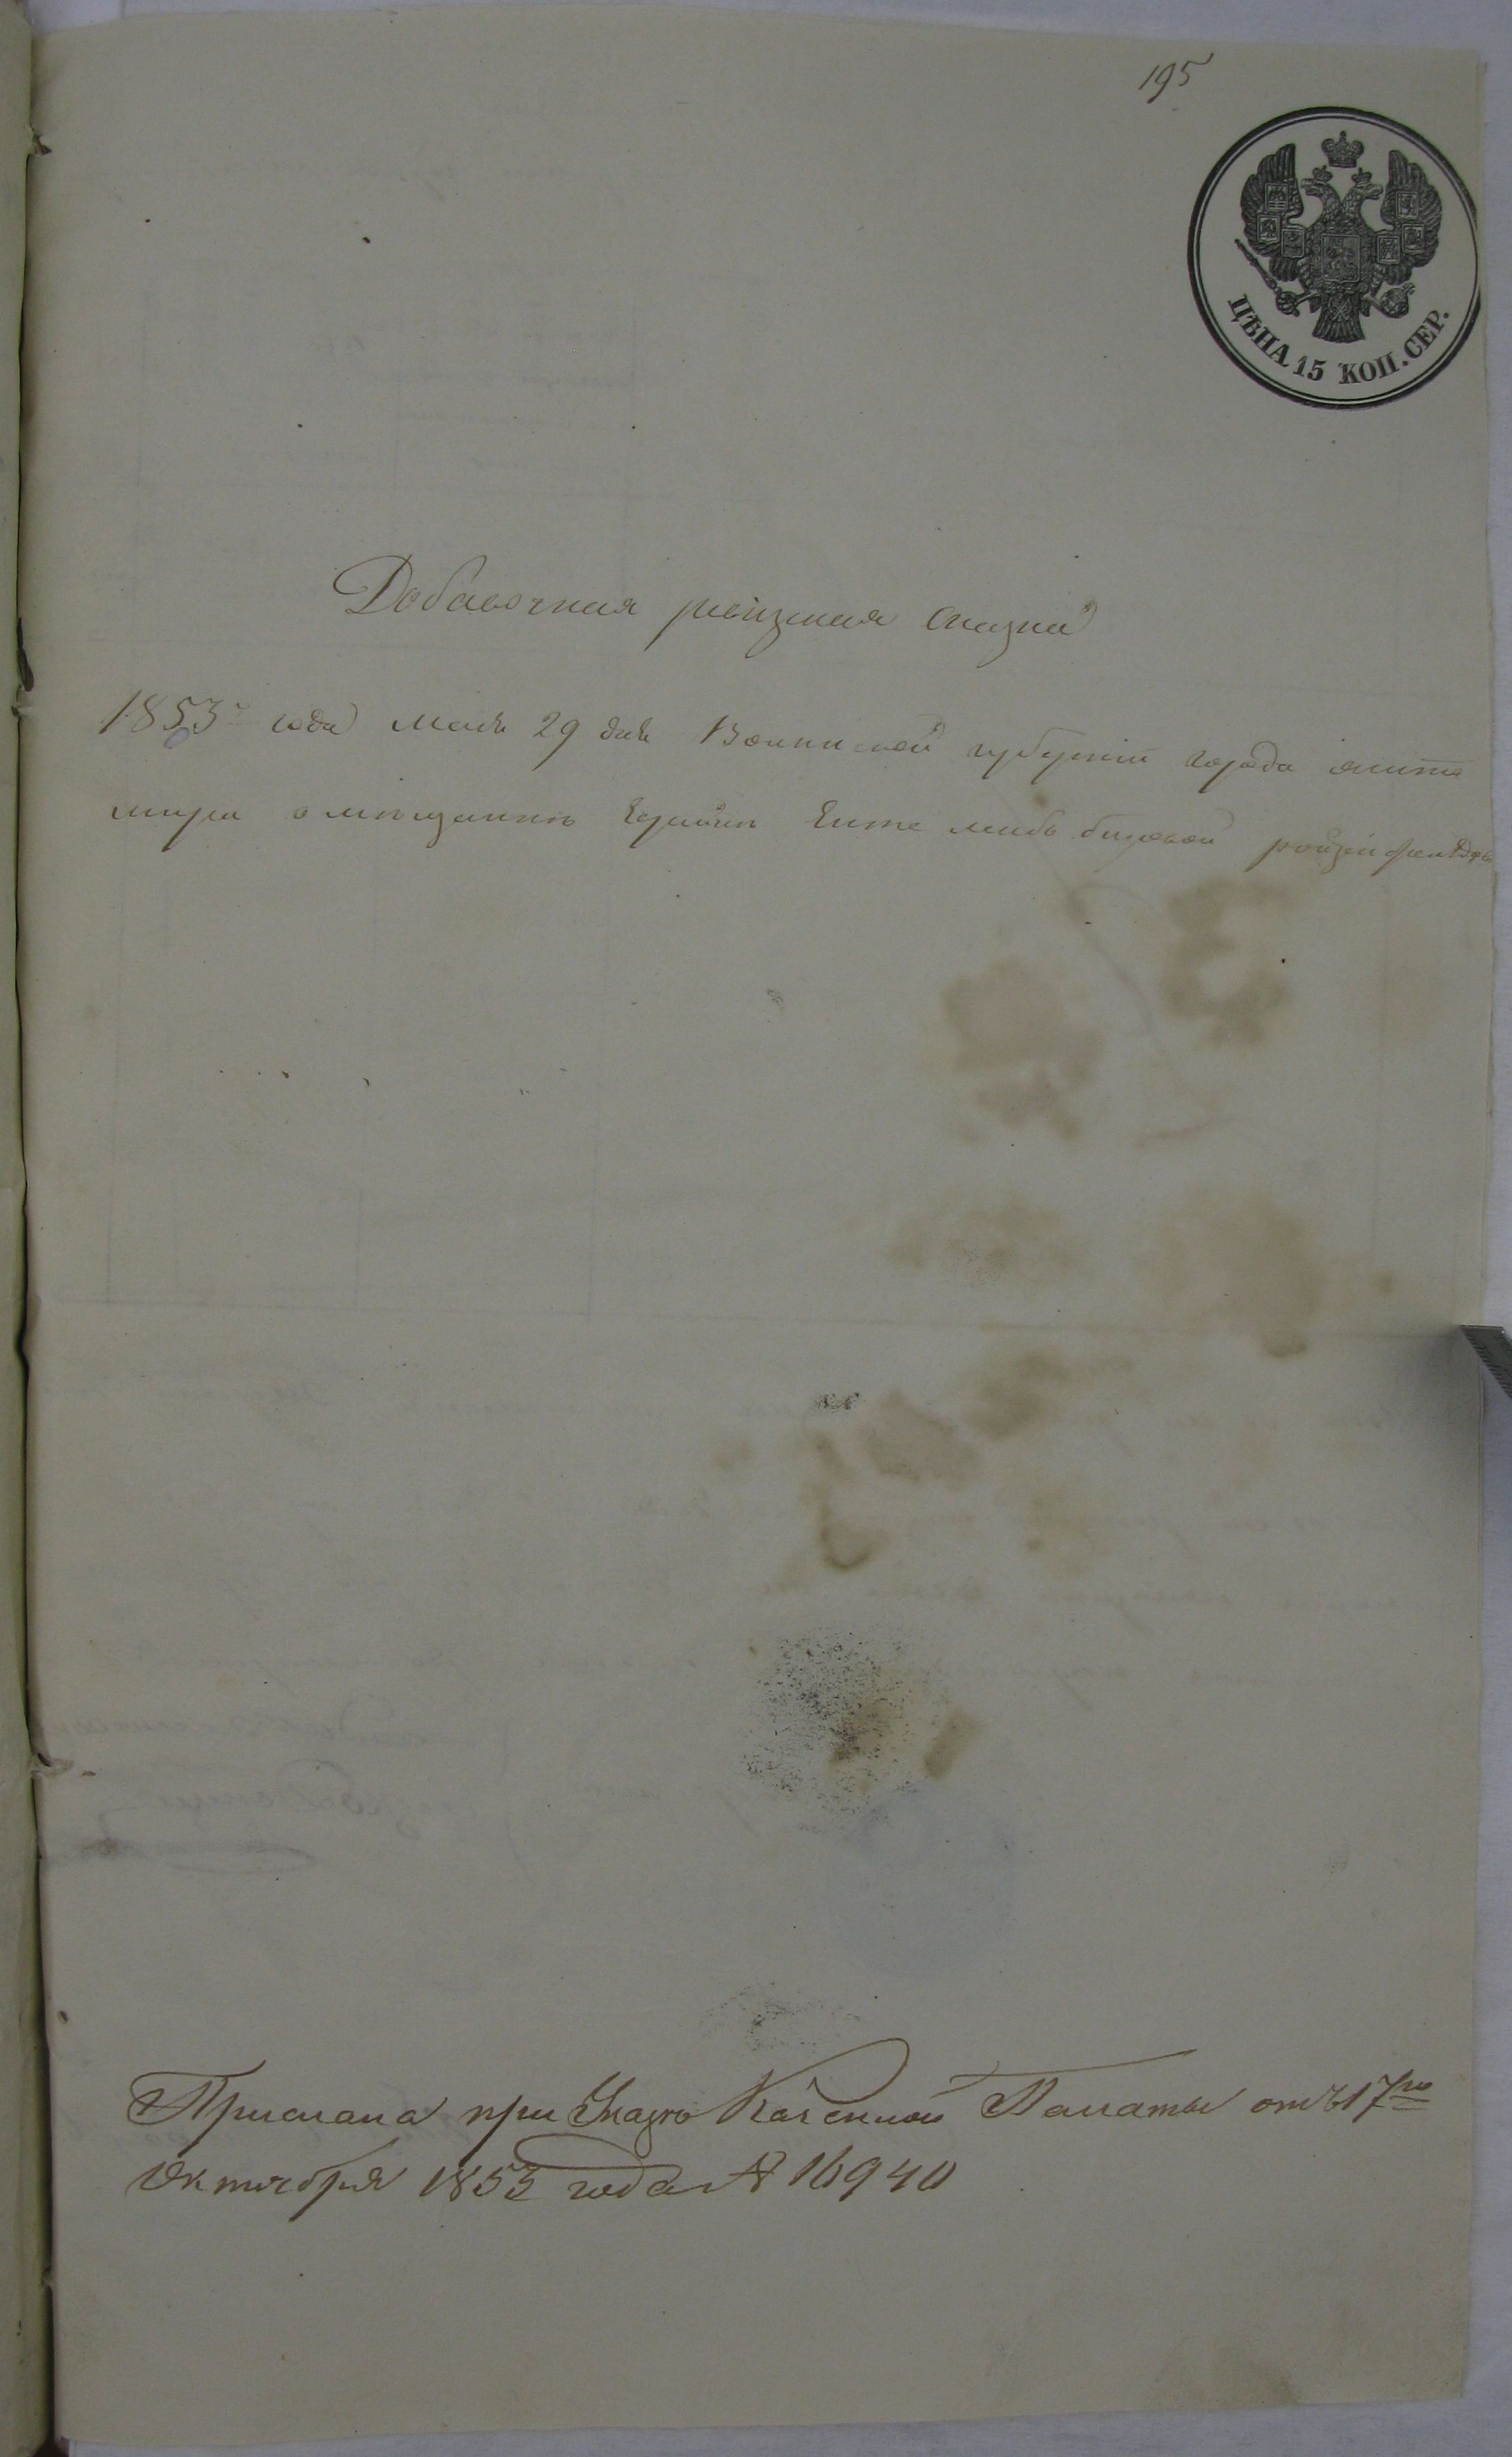 195
ЦѢНА 15 КОП. СЕР.
Добавочная ревизская сказка
1853го года Мая 29 дня Волынской губерніи города Жито
мира о мѣщанкѣ Еврейкѣ Енте
Прислана при Указѣ Казенной Палаты отъ 17го
Октября 1853 года № 16940